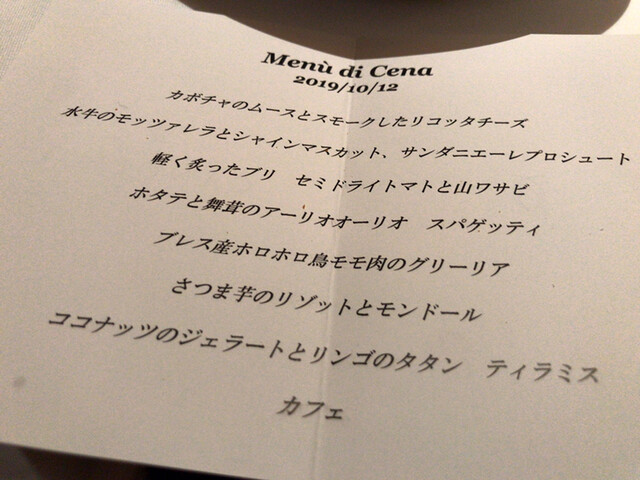 Menù di Cena
2019/10/12
カボチャのムースとスモークしたリコッタチーズ
水牛のモッツァレラとシャインマスカット、サンダニエーレプロシュート
軽く炙ったブリ　セミドライトマトと山ワサビ
ホタテと舞茸のアーリオオーリオ　スパゲッティ
ブレス産ホロホロ鳥モモ肉のグリーリア
さつま芋のリゾットとモンドール
ココナッツのジェラートとリンゴのタタン　ティラミス
カフェ